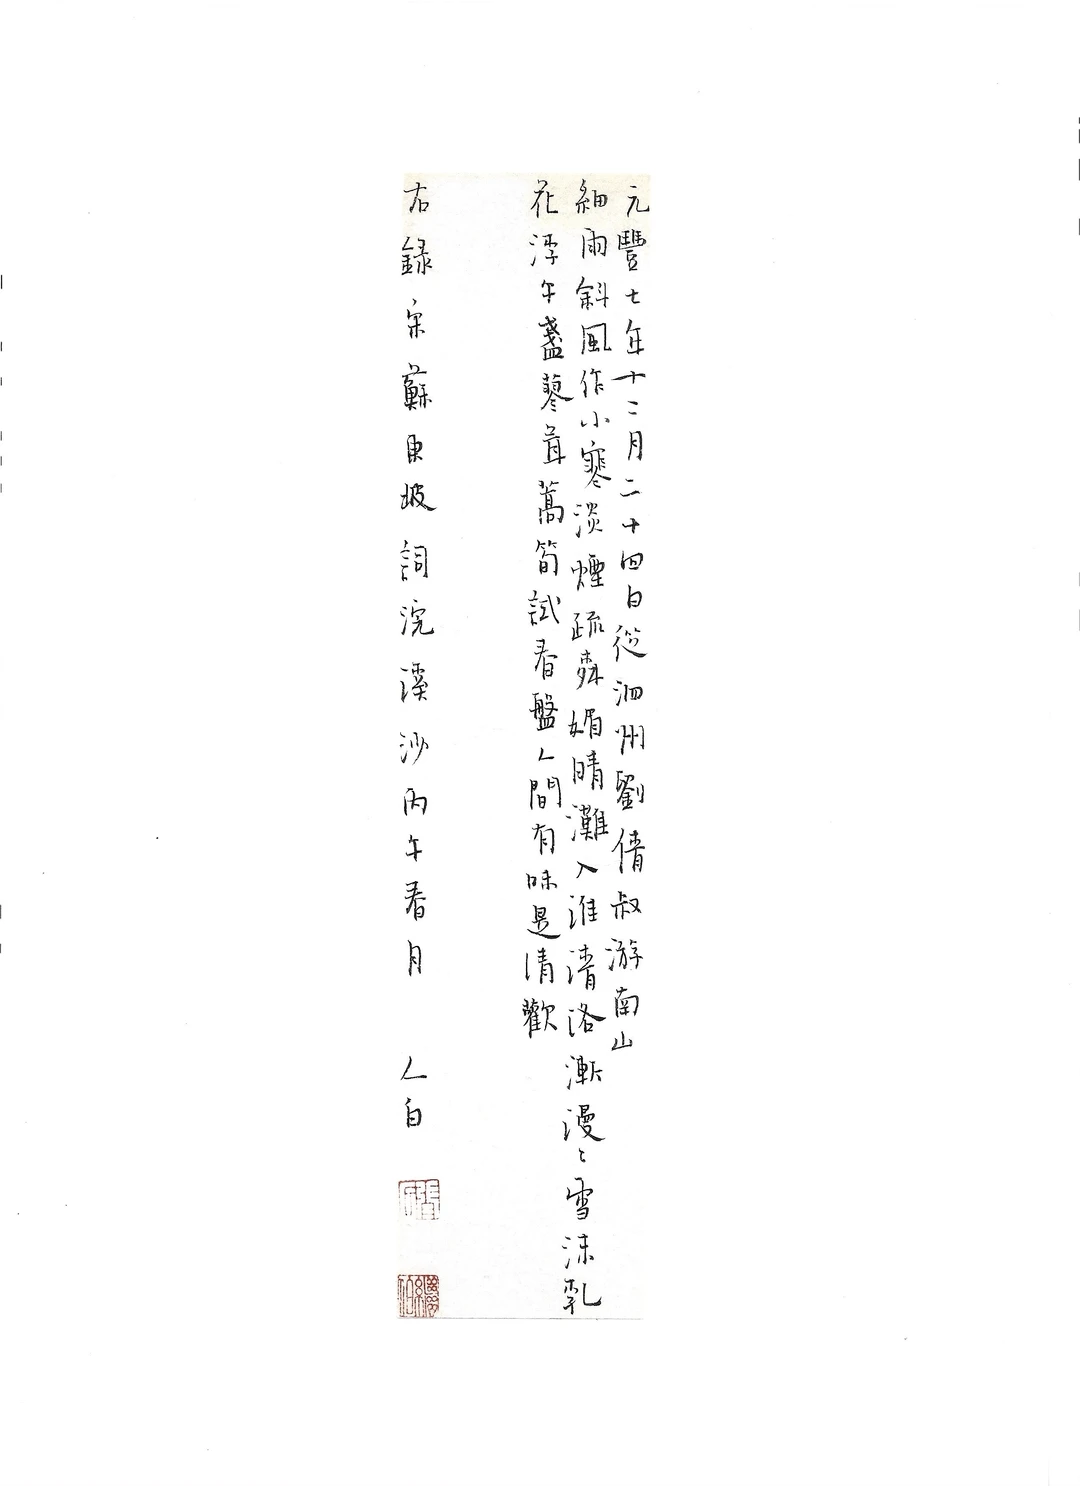 元豐七年十二月二十四日從泗州劉倩叔游南山
細雨斜風作小寒淡煙疏柳媚晴灘入淮清洛漸漫〻雪沫乳
花浮午盞蓼茸蒿筍試春盤人間有味是清歡
右錄宋蘇東坡詞浣溪沙丙午春月 人白